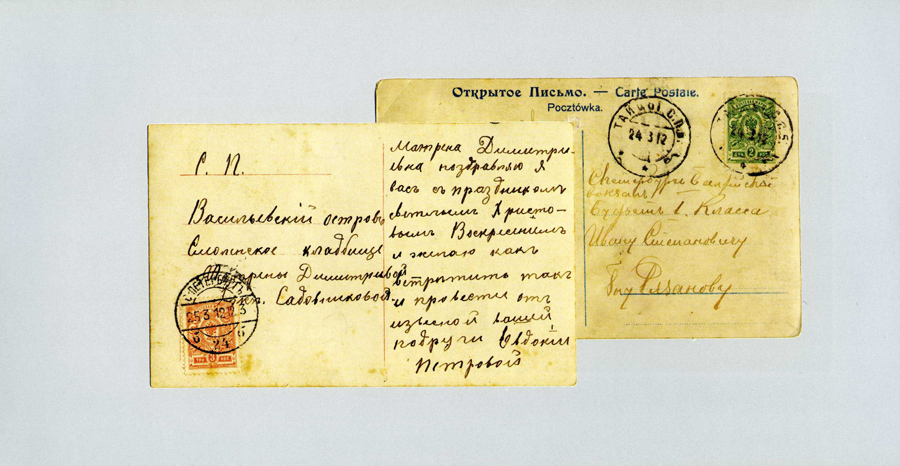 Открытое Письмо. — Carte Postale.
Pocztówka.
ТАЙЦЫ С.П.Б.
24 3 12
24 3 12
С.Петербургъ Балтійскій
вокзалъ
Буфетъ 1. Класса
Ивану Степановичу
Гну Рязанову
С. П.
Васильевскій островъ
Смоленское кладбище
Димитріевой
Садовниковой
С-ПЕТЕРБУРГЪ
25 3 12
24
Матрена Димитри-
евна поздравляю я
васъ съ праздникомъ
свѣтлымъ Христо-
вымъ Воскресеніемъ
и желаю какъ
встрѣтить такъ
и провести отъ
вашей
подруги Евдокіи
Петровой